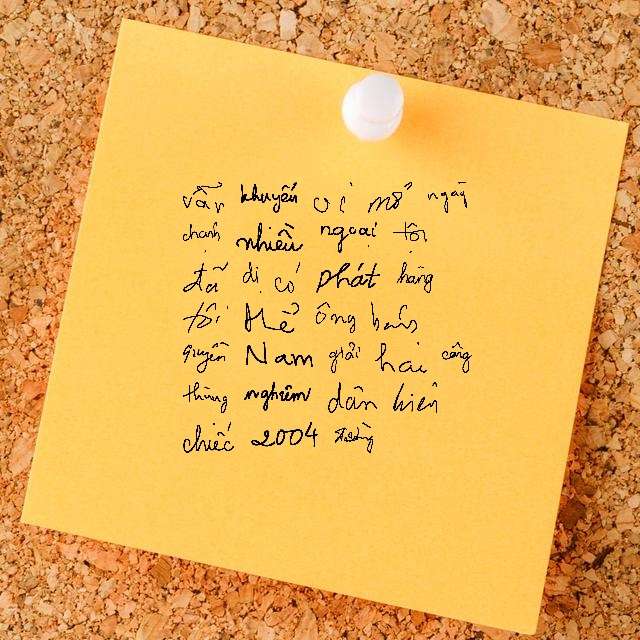 vẫn khuyến vì mổ ngày
chanh nhiều ngoại tôi
đã dị có phát hàng
tôi thể ông bán
quyền Nam giải hai công
thùng nghiêm dân kiên
chiếc 2004 đường